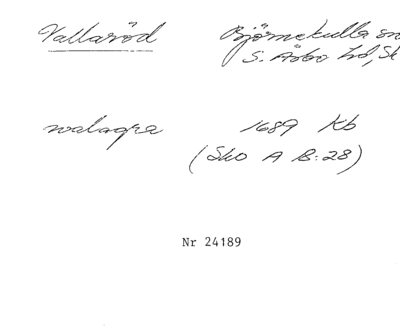 Vallaröd Björnekulla sn
S. Åsbo hd, Sk
walagra 1689 Kb
(Sko A B:28)
Nr 24189